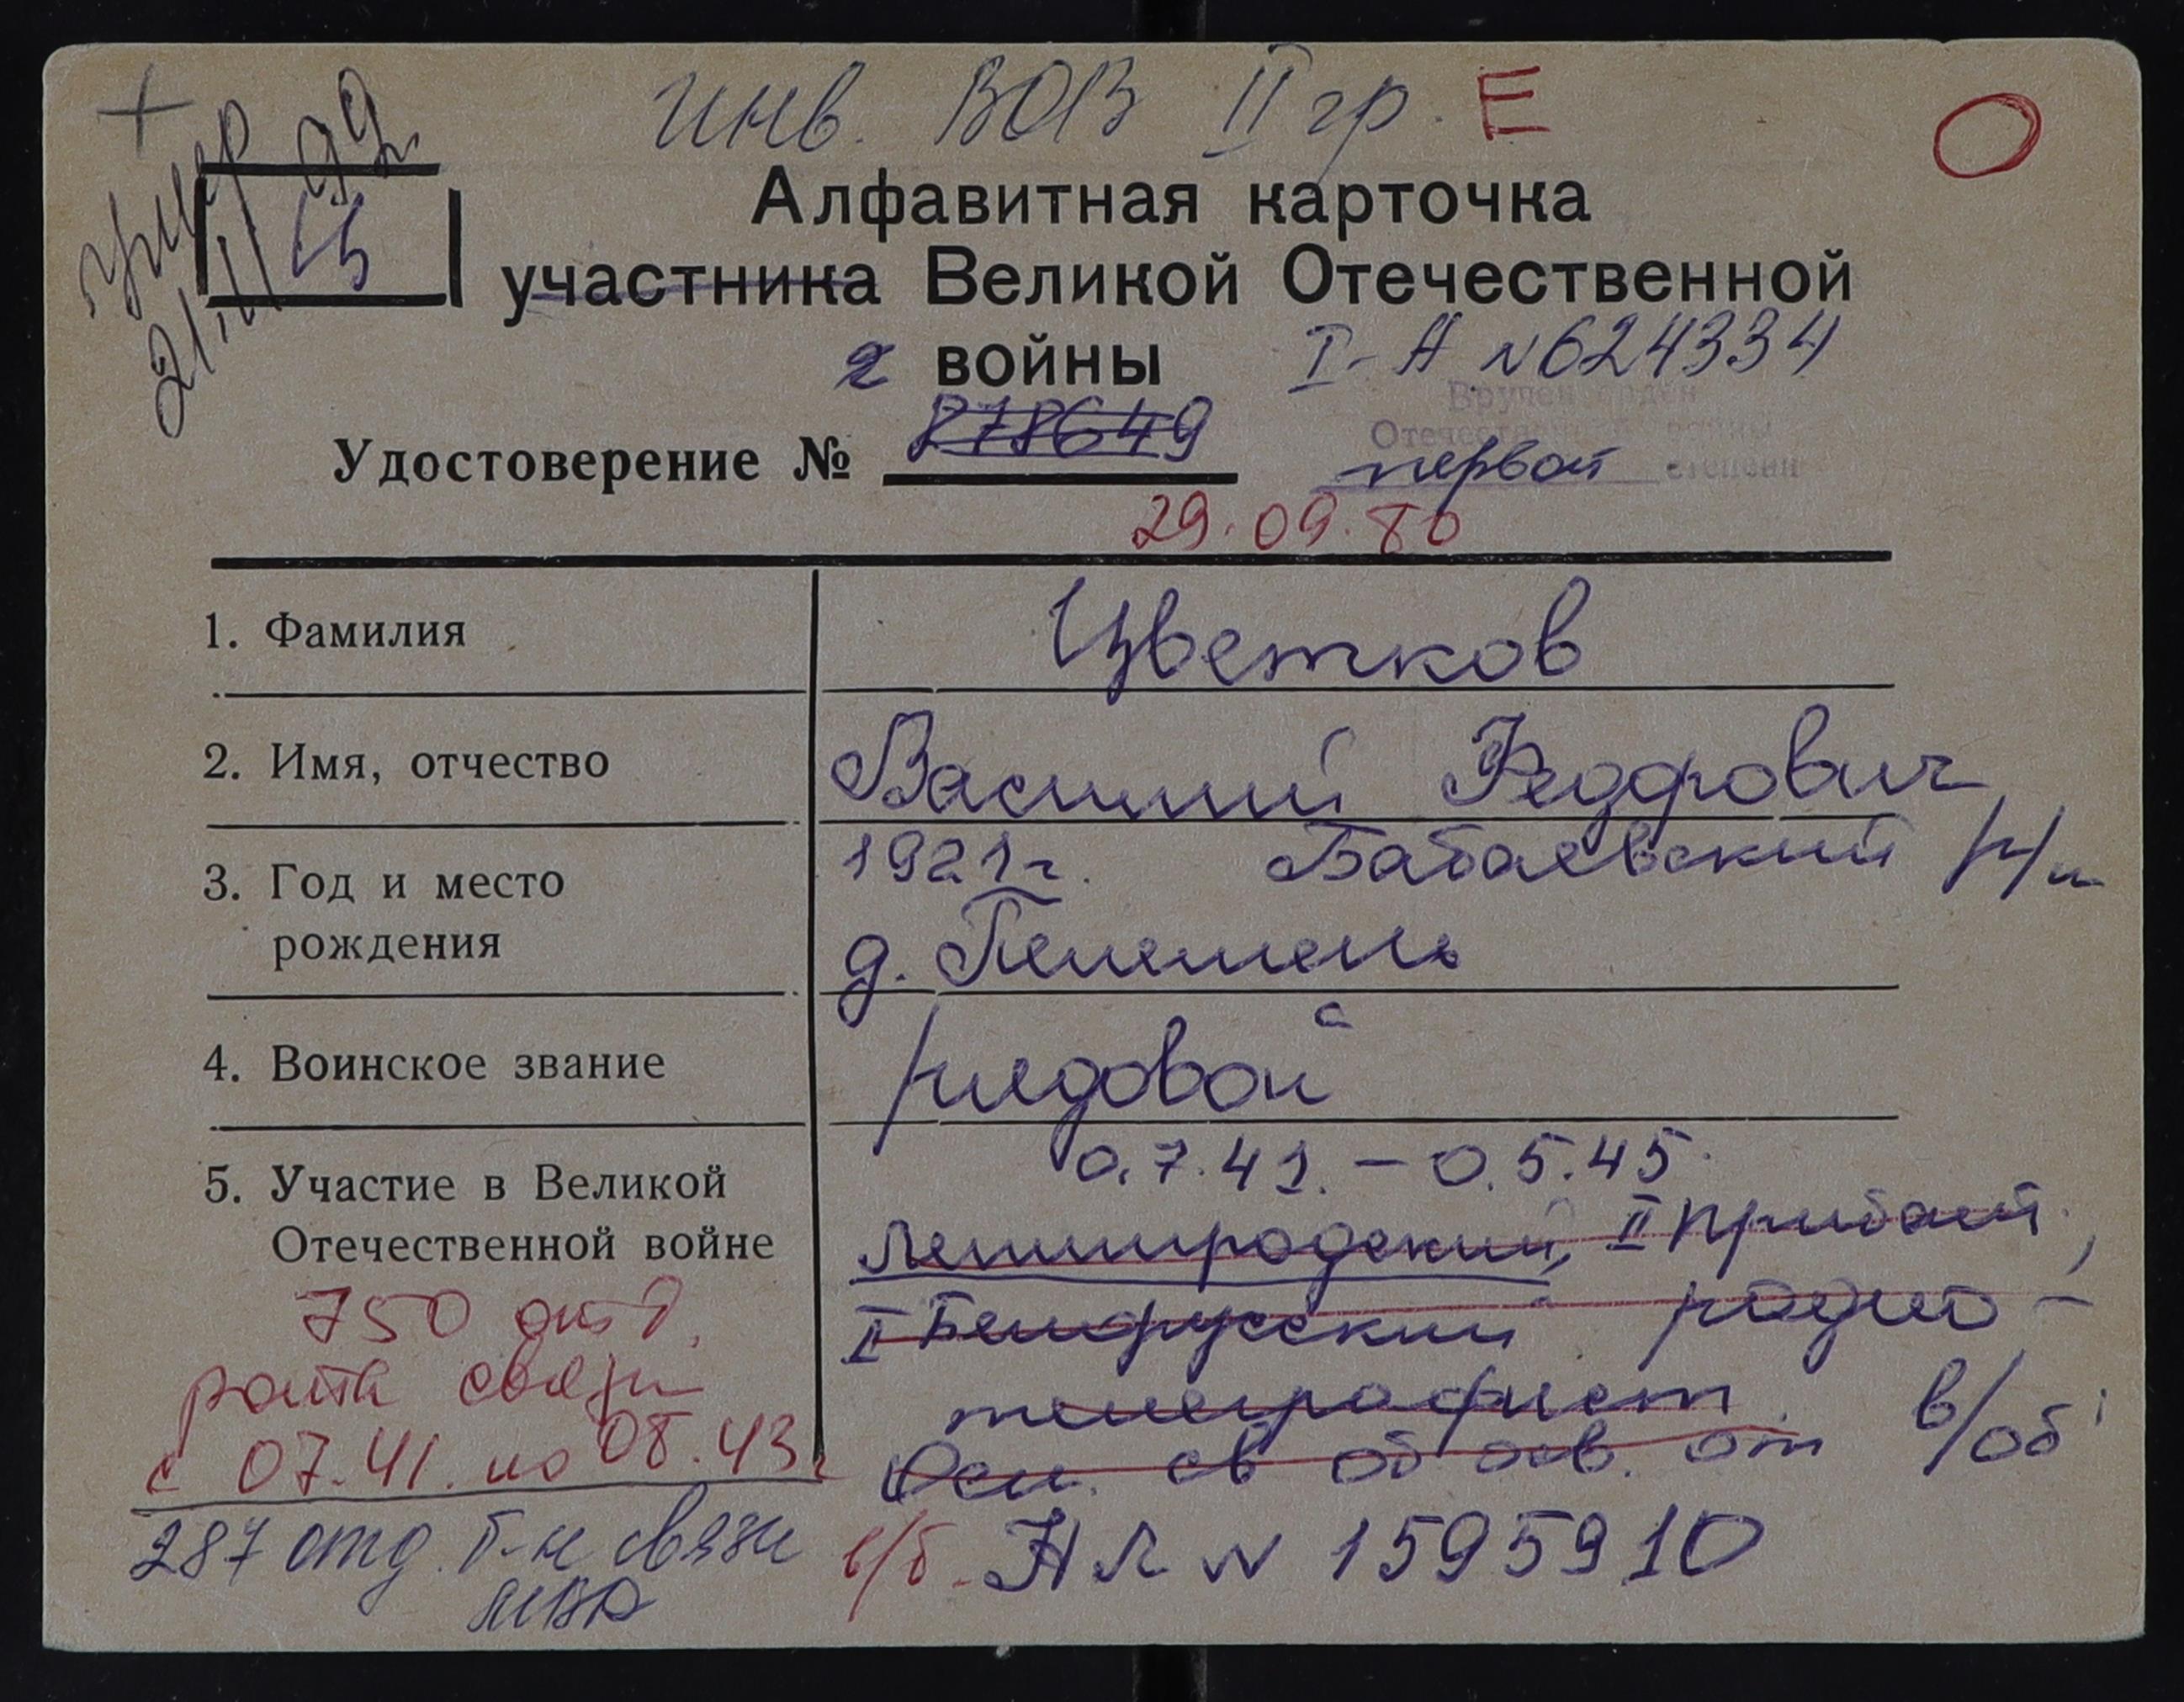 Инв. ВОВ II гр. Е
О
+
умер
21/II 99
Алфавитная карточка
участника Великой Отечественной
войны
I-А №624334
Вручен орден
Отечественной войны
первой степени
Удостоверение № 878649
29.09.80
1. Фамилия
Цветков
2. Имя, отчество
Василий Федорович
3. Год и место
рождения
1921г. Бабаевский р/н
д.
4. Воинское звание
рядовой
5. Участие в Великой
Отечественной войне
0.7.41. – 0.5.45.
Ленинградский, II Прибалт.,
II Белорусский радио-
телеграфист.
св об осв. от в/об
в/б. НЛ № 1595910
750
рота связи
с 07.41. по 08.43г
287 отд. б-н связи